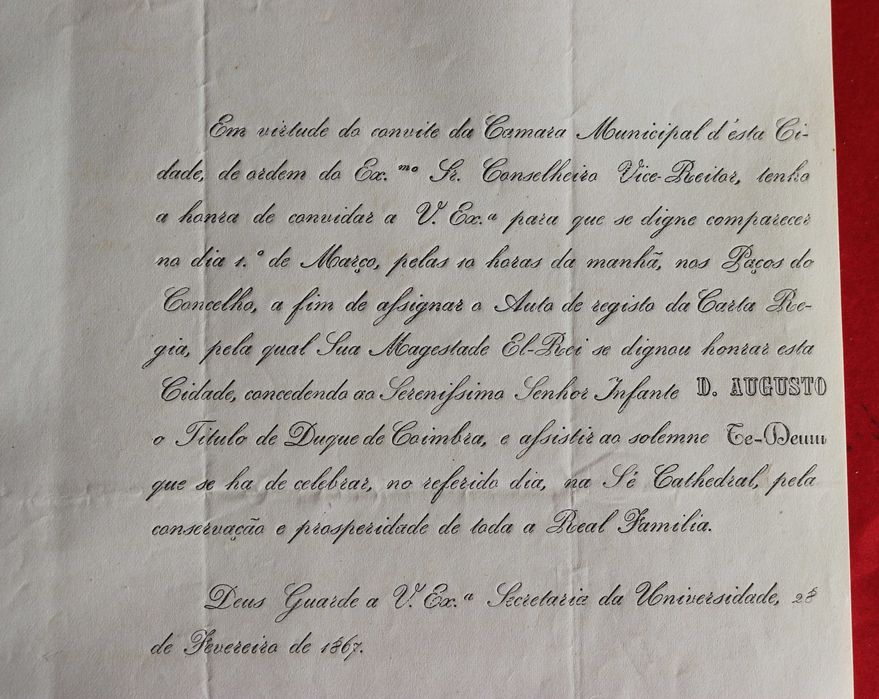 Em virtude do convite da Camara Municipal d'ésta Ci-
dade, de ordem do Ex.mo Sr. Conselheiro Vice-Reitor, tenho
a honra de convidar a V. Ex.a para que se digne comparecer
no dia 1.º de Março, pelas 10 horas da manhã, nos Paços do
Concelho, a fim de assignar o Auto de registo da Carta Re-
gia, pela qual Sua Magestade El-Rei se dignou honrar esta
Cidade, concedendo ao Serenissimo Senhor Infante D. AUGUSTO
o Titulo de Duque de Coimbra, e assistir ao solemne Te-Deum
que se ha de celebrar, no referido dia, na Sé Cathedral, pela
conservação e prosperidade de toda a Real Familia.
Deus Guarde a V. Ex.a Secretaria da Universidade, 28
de Fevereiro de 1867.